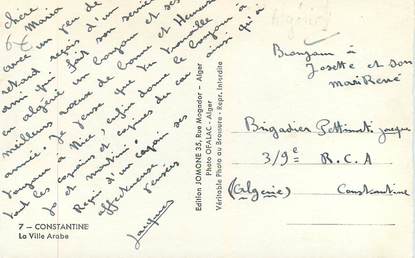 chère Maria
avec un peu de
retard reçois d'un
ami qui fait son service
en algérie un Cousin et ses
meilleurs vœux de Bonne et Heureuse
année. Je pense que tu travaille
toujours à Nice, enfin donne le Bonjour à
tout les copains et copines du car ainsi qu'à
Jo et martini.
Reçois d'un copain ses
affectueuses Pensées
Jacques
7 – CONSTANTINE
La Ville Arabe
Edition JOMONE 35, Rue Mogador - Alger
Photo OFALAC - Alger
Véritable Photo au Bromure - Repr. Interdite
Algérie
Bonjour à
Josette et son
mari René
Brigadier Pettinati jacques
3/9e R.C.A
(Algérie) Constantine